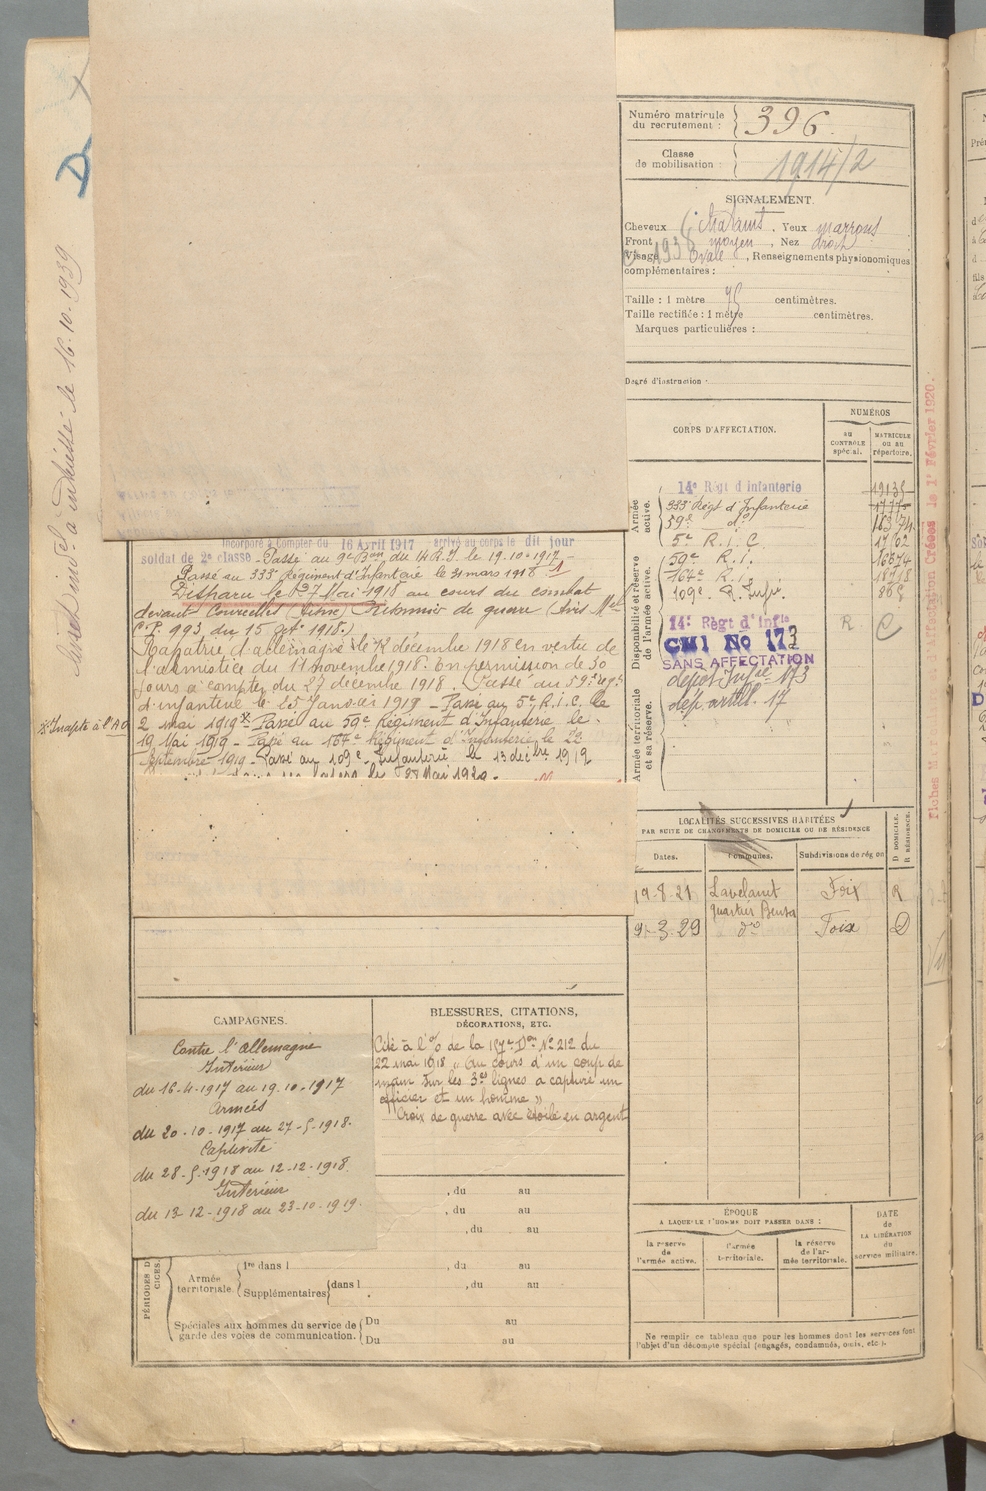 Numéro matricule du recrutement : 396
Classe de mobilisation : 1914/2
SIGNALEMENT.
Cheveux châtains, Yeux marrons
Front moyen, Nez droit
Visage ovale, Renseignements physionomiques
complémentaires :
1938
Taille : 1 mètre centimètres.
Taille rectifiée : 1 mètre centimètres.
Marques particulières :
Degré d'instruction :
CORPS D'AFFECTATION.
NUMÉROS
au CONTRÔLE spécial.
MATRICULE ou au répertoire.
Armée active.
14e Régt d'Infanterie
333e Régt d'Infanterie
59e do
5e R.I.C. 17162
Disponibilité et réserve de l'armée active.
59e R.I. 16874
164e R.I. 18718
109e R. Infie
14e Régt d'Infie R C
CMI No 173
SANS AFFECTATION
Armée territoriale et sa réserve.
dépôt Infie 173
dép. artill. 17
D
16.10.1939
Fiches d'Affectation Créées le 1r Février 1920.
Incorporé à compter du 16 Avril 1917 arrivé au corps le dit jour
soldat de 2e classe - Passé au 9e Bon du 14 R.I. le 19.10.1917 -
Passé au 333e Régiment d'Infanterie le 31 mars 1918
Disparu le 27 Mai 1918 au cours du combat
devant Courcelles (Aisne) Prisonnier de guerre (Avis Mel
C.P. 993 du 15 Oct 1918.)
Rapatrié d'allemagne le 12 décembre 1918 en vertu de
l'armistice du 11 novembre 1918. En permission de 30
jours à compter du 27 décembre 1918. Passé au 59e régt
d'infanterie le 25 Janvier 1919 - Passé au 5e R.I.C. le
* Inapte à l'A.O
2 mai 1919 * Passé au 59e Régiment d'Infanterie le
19 Mai 1919 - Passé au 164e Régiment d'Infanterie le 22
Septembre 1919 - Passé au 109e Infanterie le 13 décbre 1919
le 28 Mai 1920.
LOCALITÉS SUCCESSIVES HABITÉES
PAR SUITE DE CHANGEMENTS DE DOMICILE OU DE RÉSIDENCE
Dates. Communes. Subdivisions de région D DOMICILE. R RÉSIDENCE.
19-8-21 Lavelanet Foix R
quartier Bensa
3-29 do Foix D
CAMPAGNES.
Contre l'Allemagne
Intérieur
du 16-4-1917 au 19.10-1917
Armées
du 20-10-1917 au 27-5-1918.
Captivité
du 28-5-1918 au 12-12-1918
Intérieur
du 13-12-1918 au 23-10-1919.
BLESSURES, CITATIONS,
DÉCORATIONS, ETC.
Cité à l'O/ de la Don No 212 du
22 mai 1918 "au cours d'un coup de
main sur les 3es lignes a capturé un
officier et un homme"
Croix de guerre avec étoile en argent
, du au
, du au
, du au
PÉRIODES D CICES.
Armée territoriale. 1re dans l , du au
Supplémentaires dans l , du au
Spéciales aux hommes du service de garde des voies de communication. Du au
Du au
ÉPOQUE
A LAQUELLE L'HOMME DOIT PASSER DANS :
la réserve de l'armée active.
l'armée territoriale.
la réserve de l'armée territoriale.
DATE de LA LIBÉRATION du service militaire.
Ne remplir ce tableau que pour les hommes dont les services font
l'objet d'un décompte spécial (engagés, condamnés, omis, etc.).